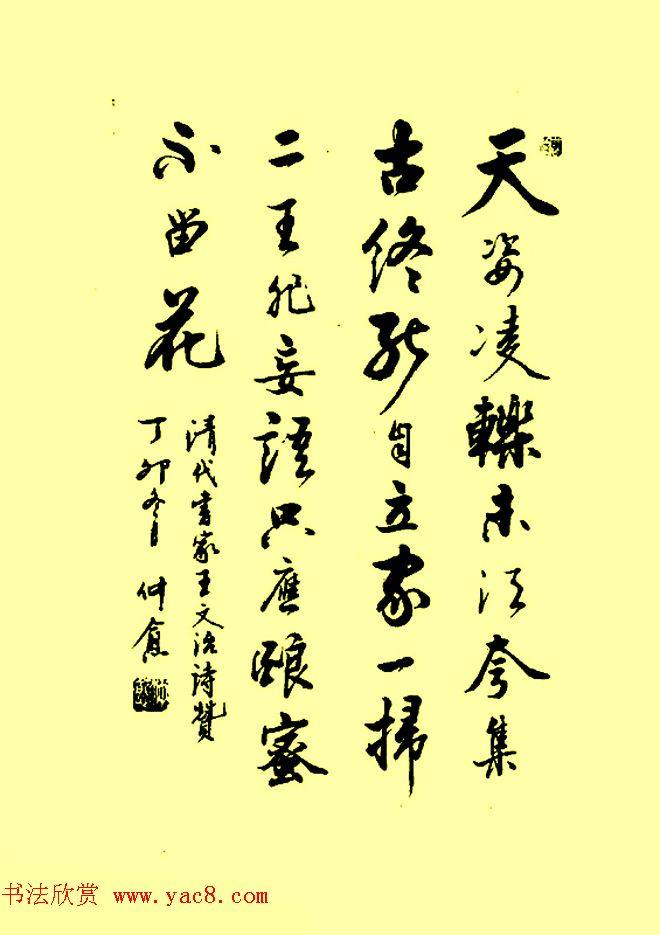 天姿凌轢未須夸集
古終能自立家一掃
二王非妄語只應釀蜜
不留花
清代書家王文治詩贊
丁卯冬月 仲愈
书法欣赏 www.yac8.com